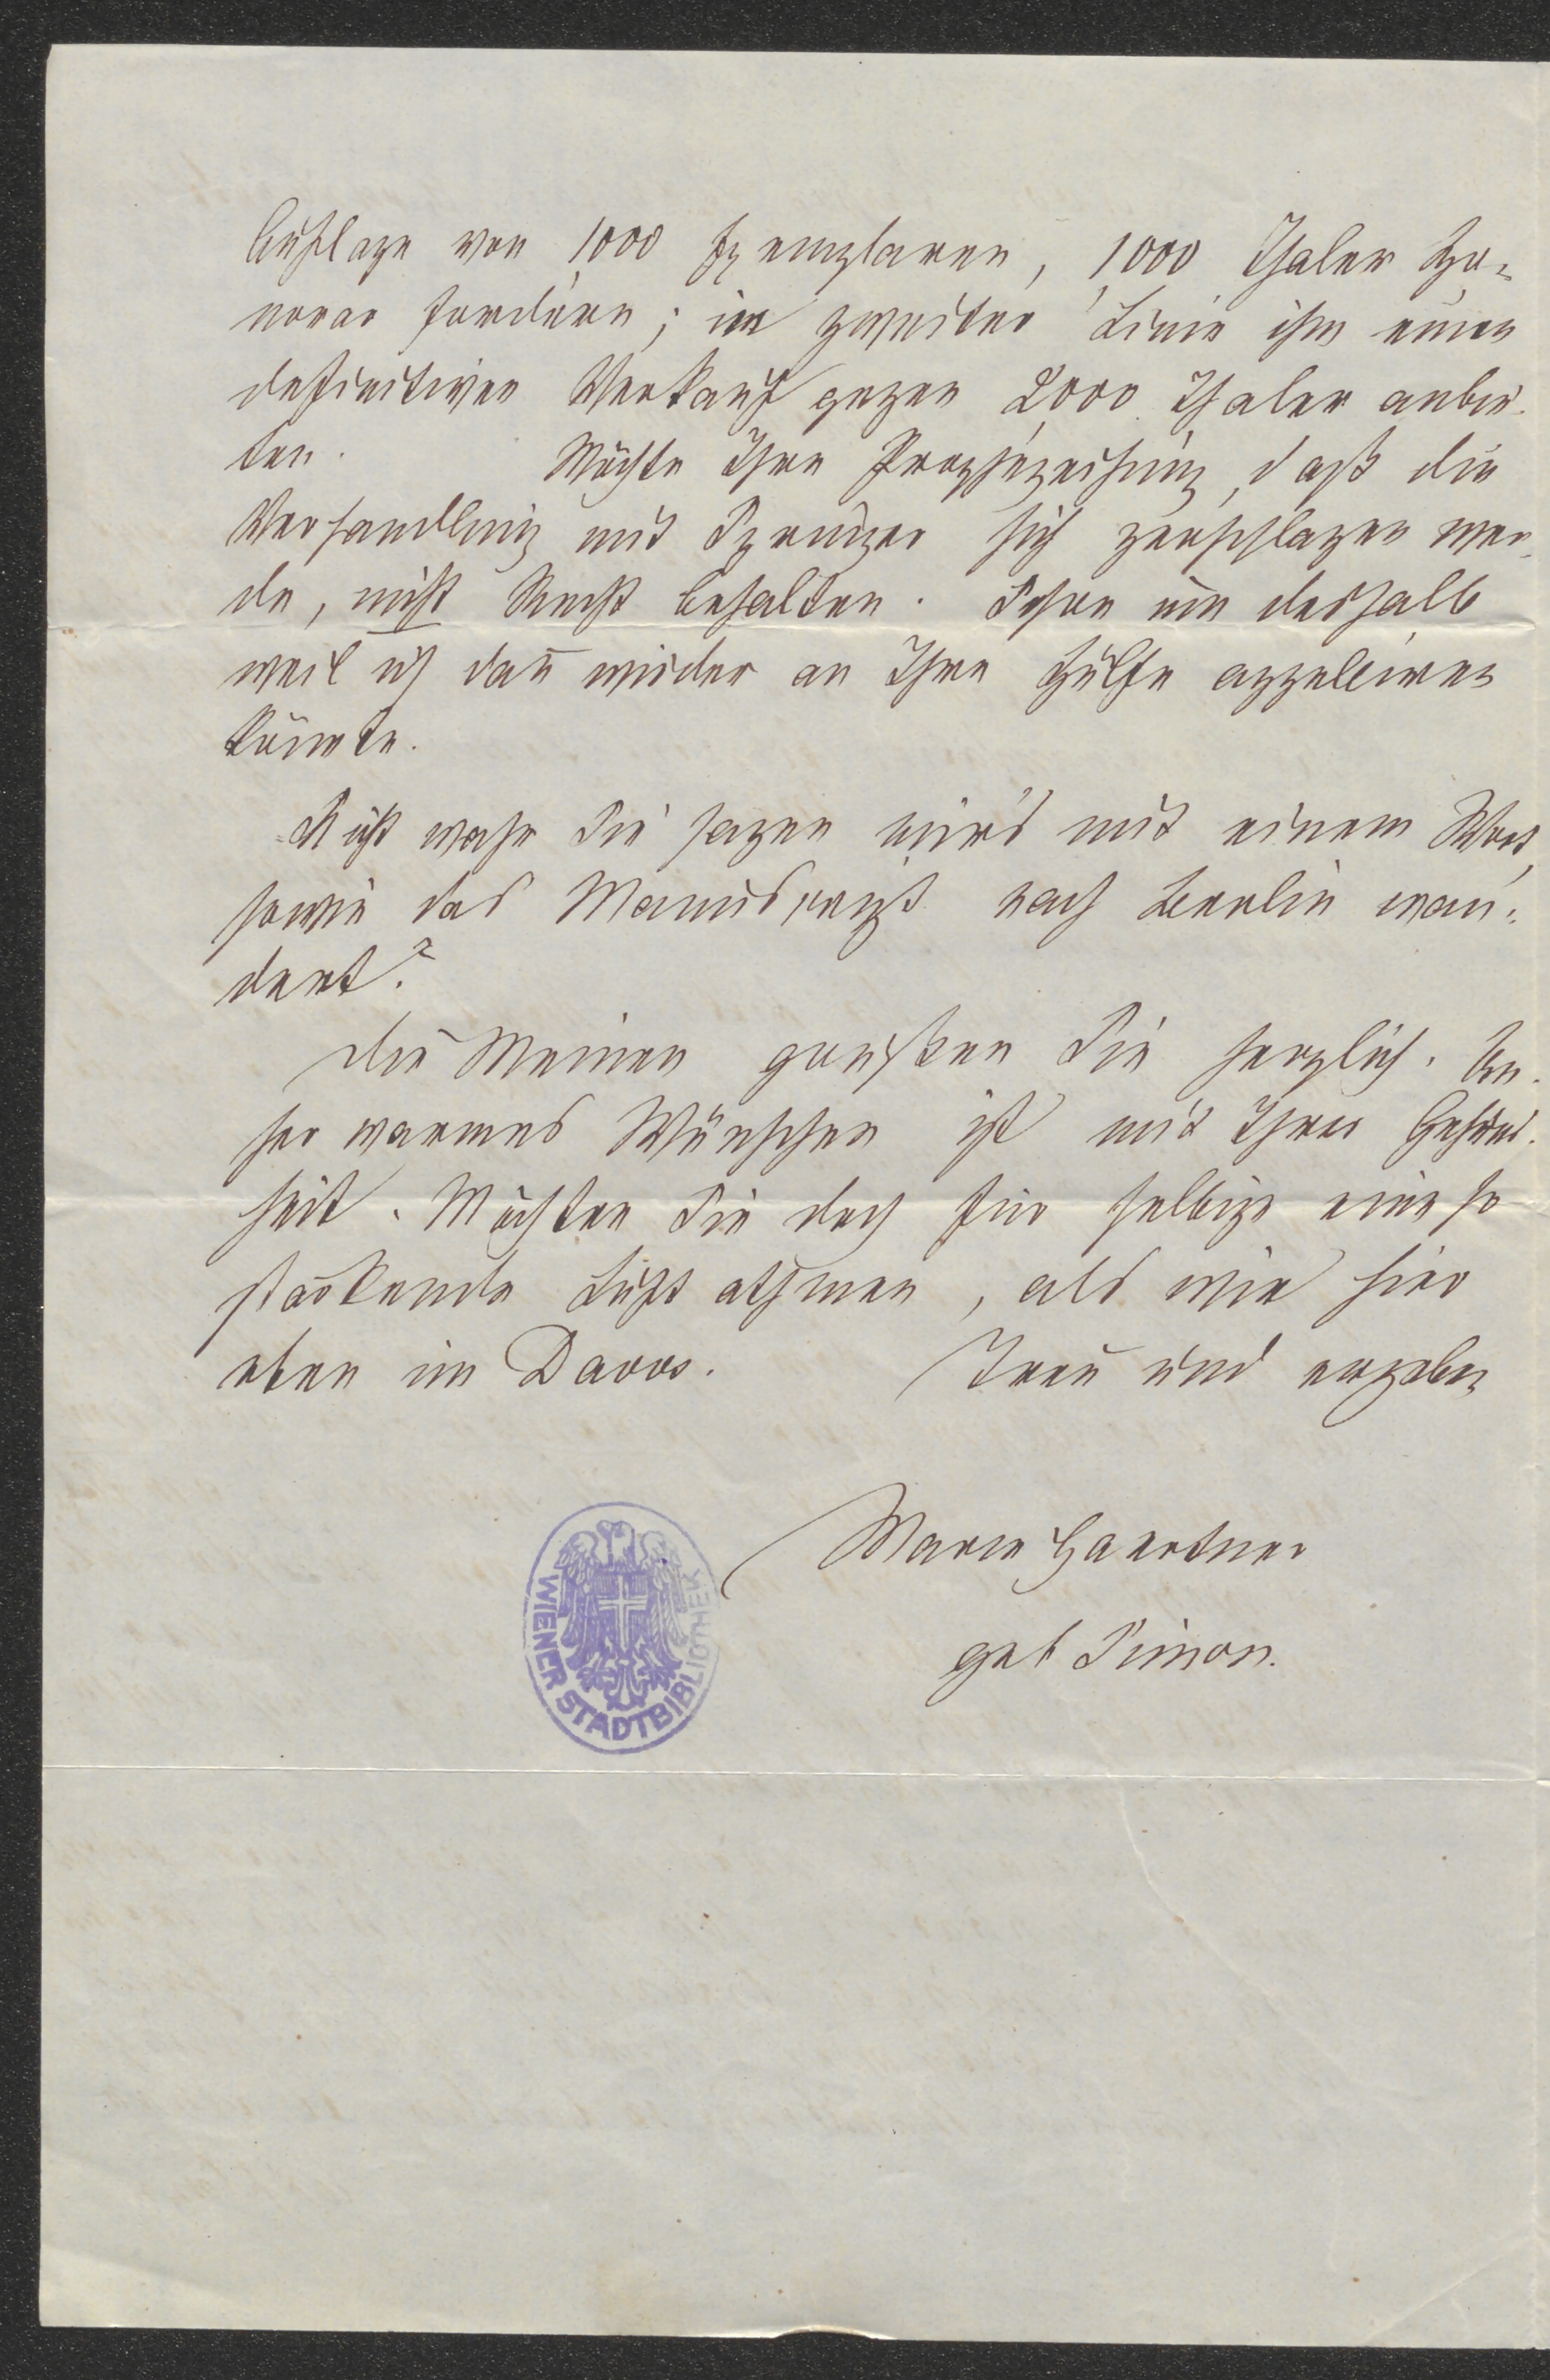 Auflage von 1000 Exemplaren, 1000 Thaler Ho-
norar fordern; in zweiter Linie ihm einen
definitiven Verkauf gegen 2000 Thaler anbie-
ten. Möchte Ihre Prophezeihung, daß die
Verhandlung mit Springer sich zerschlagen wer-
de, nicht Recht behalten. Schon um deshalb
weil ich dañ wieder an Ihre Hülfe appelliren
könnte.
Nicht wahr Sie sagen mir's mit einem Wort,
sowie das Manuskript nach Berlin wan-
dert?
Die Meinen grüßen Sie herzlich. Un-
ser warmes Wünschen ist mit Ihrer Gesund-
heit. Möchten Sie doch für selbige eine so
stärkende Luft athmen, als wir hier
oben in Davos. Treu und ergeben
Marie Gaertner
geb Simon.
WIENER STADTBIBLIOTHEK